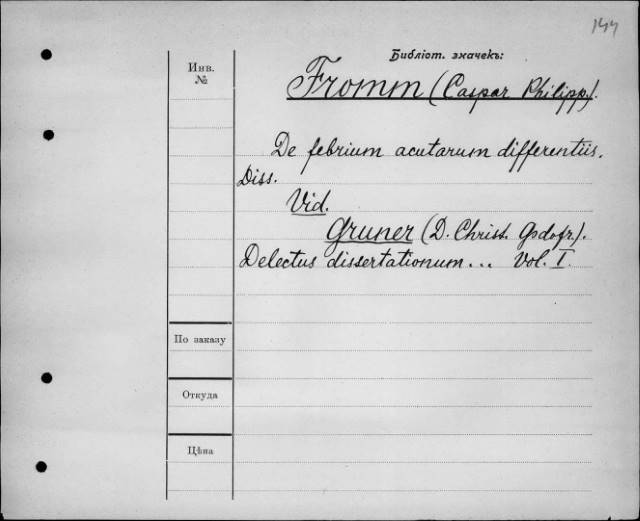 144
Библіот. значекъ:
Инв.
№
Fromm (Caspar Philipp.).
De febrium acutarum differentiis.
Diss.
Vid.
Gruner (D. Christ. Godofr.).
Delectus dissertationum... Vol. I.
По заказу
Откуда
Цѣна